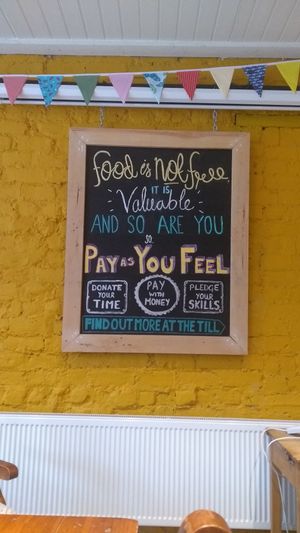 food is Not free,
IT IS
Valuable
AND SO ARE YOU
so
PAY AS YOU FEEL
DONATE YOUR TIME
PAY WITH MONEY
PLEDGE YOUR SKILLS
FIND OUT MORE AT THE TILL